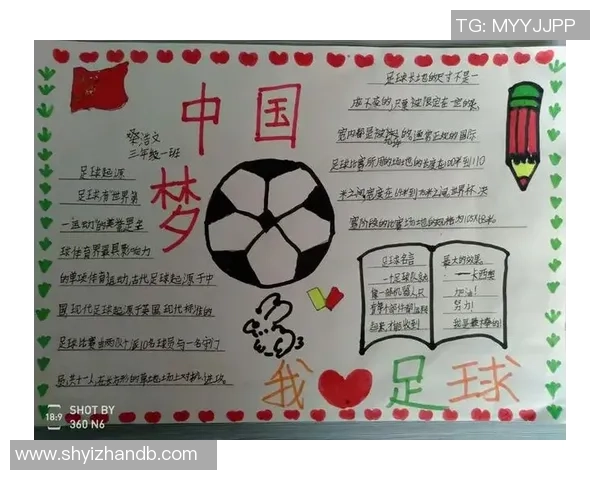 TG: MYYJJPP
中国
梦
梁浩文
三年级一班
足球起源
足球有"世界第
一运动"的美誉是全
球体育界最具影响力
的单球体育运动,古代足球起源于中
国,现代足球起源于英国,现代标准的
足球比赛由两队十派10名球员与一名守门
员,共十一人,在长方形的草地场上对抗,进攻。
足球长土地的尺寸不是一
成不变的,只要被限定在一定的
足球比赛所用的场地的长度在100米到110
米之间宽度在64米到75米之间世界杯决
赛阶段的比赛场地的规格为105X68米。
足球名言
一个足球队应
像一部机器人只
有零个部件都
最大的效果。
——卡西奥
加油!
努力!
我是最棒的!
我 足球
SHOT BY
360 N6
www.shyizhandb.com